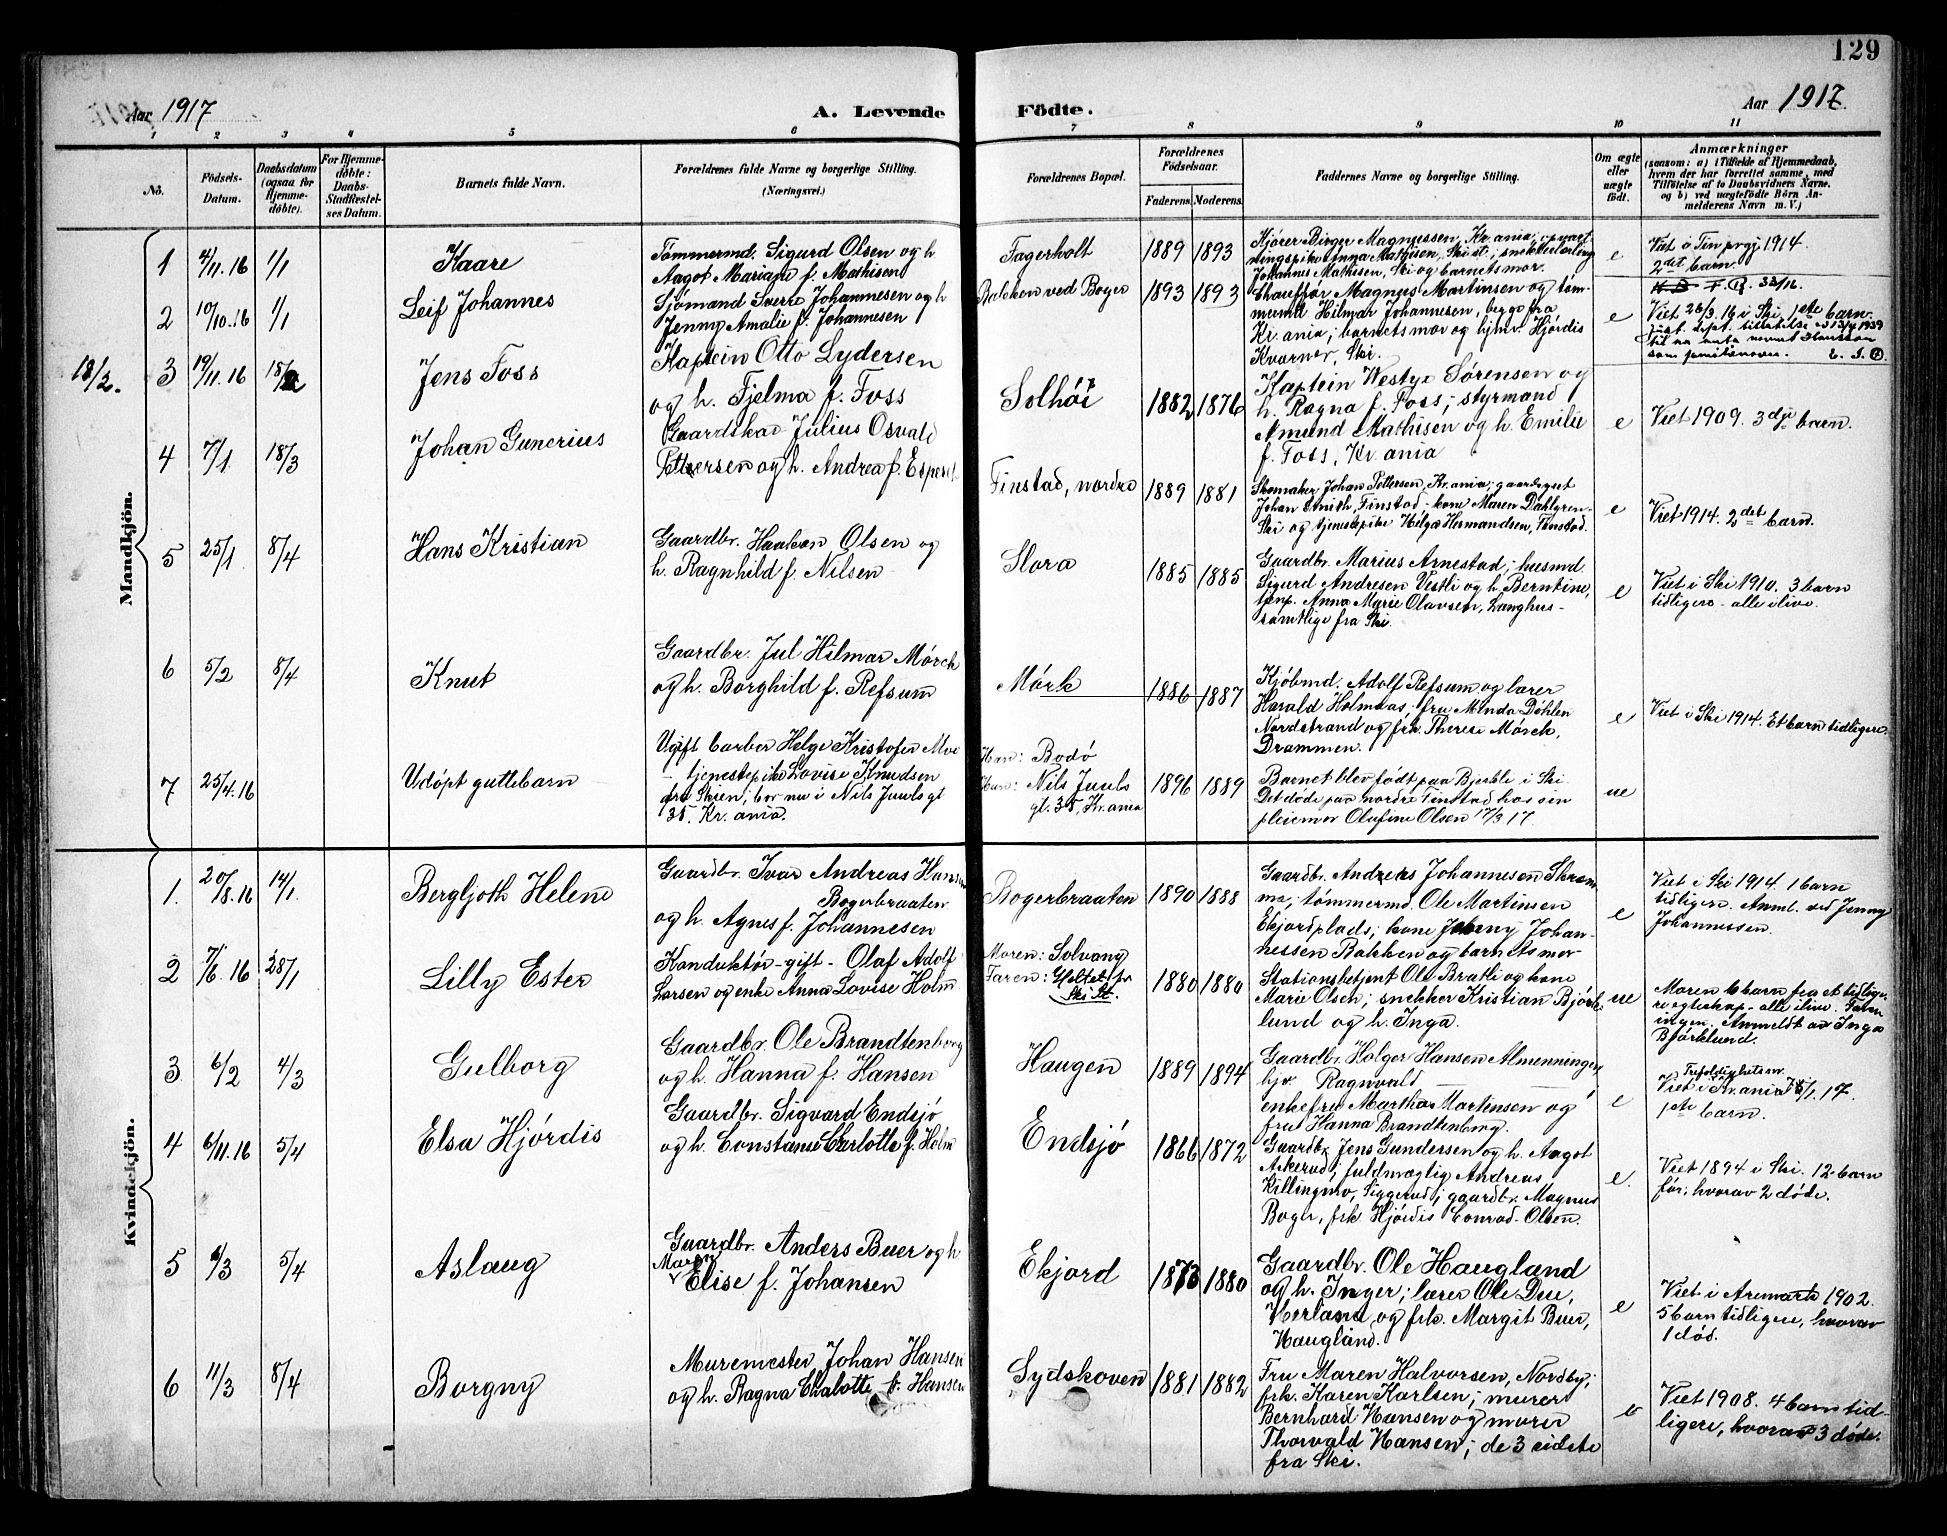 129
Aar 1917
A. Levende Födte.
Aar 1917.
1 2 3 4 5 6 7 8 9 10 11
No.
Födsels-
Datum.
Daabsdatum
(ogsaa for
Hjemme-
döbte).
For Hjemme-
döbte:
Daabs-
Stadfæstel-
ses Datum.
Barnets fulde Navn.
Forældrenes fulde Navne og borgerlige Stilling.
(Næringsvei.)
Forældrenes Bopæl.
Forældrenes
Födselsaar.
Faderens. Moderens.
Faddernes Navne og borgerlige Stilling.
Om ægte
eller
uægte
født.
Anmærkninger
(saasom: a) i Tilfælde af Hjemmedaab,
hvem der har forrettet samme, med
Tilföielse af to Daabsvidners Navne,
og b) ved uægtefödte Börn An-
melderens Navn m. V.)
Mandkjön.
1 4/11.16 1/1 Kaare
Tømmermd. Sigurd Olsen og h.
Aagot Mariane f. Mathisen
Fagerholt 1889 1893
Kjører Birger Magnussen, Kr.ania; opvart
ningspike Anna Mathisen, Ski st.; snekkerlærling
Johannes Mathisen, Ski og barnets mor.
e
Viet 1914.
2det barn.
2 10/10.16 1/1 Leif Johannes
Sjømand Sverre Johannesen og h
Jenny Amalie f. Johannesen
Bakken ved Boger 1893 1893
Chauffør Magnus Martinsen og tøm-
mermd Hilmar Johannesen, begge fra
Kr.ania; barnets mor og hjmv. Hjørdis
Kværner, Ski.
e
Viet 26/3.16 i Ski. 1ste barn.
18/2. 3 19/11.16 18/2 Jens Foss
Kaptein Otto Lydersen
og h. Fjelma f. Foss
Solhøi 1882 1876
Kaptein Westye Sørensen og
h. Ragna f. Foss; styrmand
Amund Mathisen og h. Emilie
f. Foss, Kr.ania
e
Viet 1909. 3dje barn.
4 7/1 18/3 Johan Gunerius
Gaardskar Julius Osvald
Pettersen og h. Andrea f. Espens
Finstad, nordre 1889 1881
Skomaker Johan Pettersen, Kr.ania; gaardsgut
Johan Smith, Finstad; kone Maren Dahlgren
Ski og tjenestepike Helga Hermandsen, Finstad.
e
Viet 1914. 2det barn.
5 25/1 8/4 Hans Kristian
Gaardbr. Haakon Olsen og
h. Ragnhild f. Nilsen
Slora 1885 1885
Gaardbr. Marius Arnestad; husmd
Sigurd Andresen Vestli og h. Berntine,
tjenp. Anna Marie Olavsen, Langhus-
samtlige fra Ski.
e
Viet i Ski 1910. 3 barn
tidligere - alle ilive.
6 5/2 8/4 Knut
Gaardbr. Jul Hilmar Mørch
og h. Borghild f. Refsum
Mørk 1886 1887
Kjøbmd. Adolf Refsum og lærer
Harald Holmaas; fru Minda Døhlen
Nordstrand og frk. Therese Mørch,
Drammen.
e
Viet i Ski 1914. Et barn tidligere.
7 25/4.16 Udöpt guttebarn
Ugift barber Helge Kristofer Moe
- tjenestepike Lovise Knudsen
fra Skien; bor nu i Nils Juuls gt
35. Kr.ania.
Han: Bodø
Hun: Nils Juuls
gt. 35, Kr.ania
1896 1889
Barnet blev født paa Bjerkli i Ski.
Det døde paa nordre Finstad hos sin
pleiemor Olufine Olsen 17/3 17.
ue
Kvindekjön.
1. 20/8.16 14/1. Bergljoth Helene
Gaardbr. Ivar Andreas Hansen
Bogerbraaten
og h. Agnes f. Johannesen
Bogerbraaten 1890 1888
Gaardbr. Andreas Johannesen Skram
ma; tømmermd. Ole Martinsen
Ekjordplads; kone Jenny Johan-
nessen Bakken og barnets mor
e
Viet i Ski 1914. 1 barn
tidligere. Anml. ved Jenny
Johannessen.
2 7/6.16 28/1 Lilly Ester
Konduktør - gift - Olaf Adolf
Larsen og enke Anna Lovise Holm
Moren: Solvang
Faren: Holtet pr
Ski St.
1880 1880
Stationsbetjent Ole Bratli og kone
Marie Olsen; snekker Kristian Bjørk-
lund og h. Inga.
ue
Moren 6 barn fra et tidlige-
re egteskap - alle ilive. Faren
ingen. Anmeldt av Inga
Bjørklund.
3 6/2 4/3 Gulborg
Gaardbr. Ole Brandtenborg
og h. Hanna f. Hansen
Haugen 1889 1894
Gaardbr. Holger Hansen Almenningen
hjv. Ragnvald —
enkefru Martha Martinsen og
frue Hanna Brandtenborg.
e
Trefoldighets m.
Viet i Kr.ania 1.17.
1ste barn.
4 6/11.16 5/4 Elsa Hjørdis
Gaardbr. Sigvard Endsjø
og h. Constanse Charlotte f. Holm
Endsjø 1866 1872
Gaardbr Jens Gundersen og h. Aagot
Askerud; fuldmægtig Andreas
Killingmo, Siggerud; gaardbr. Magnus
Boger, frk Hjørdis Conrad-Olsen.
e.
Viet 1894 i Ski. 12 barn
før; hvorav 2 døde.
5 6/3 5/4 Aslaug
Gaardbr. Anders Buer og h.
Maren
Elise f. Johansen
Ekjord 1873 1880
Gaardbr. Ole Haugland
og h. Inger; lærer Ole Due,
Herland og frk. Margit Buer,
Haugland.
e
Viet i Aremark 1902.
5 barn tidligere, hvorav
1 død.
6 11/3 8/4 Borgny
Muremester Johan Hansen
og h. Ragna Chalotte f. Hansen
Sydskoven 1881 1882
Fru Maren Halvorsen, Nordby;
frk. Karen Karlsen; murer
Bernhard Hansen og murer
Thorvald Hansen; de 3 sidste
fra Ski.
e
Viet 1908. 4 barn tid-
ligere, hvorav 3 døde.